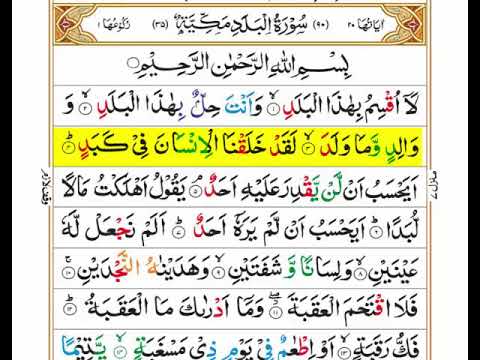 اٰيَاتُهَا ٢٠ (٩٠) سُوْرَةُ الْبَلَدِ مَكِّيَّةٌ (٣٥) رُكُوْعُهَا ١
بِسْمِ اللّٰهِ الرَّحْمٰنِ الرَّحِيْمِ
لَاۤ اُقْسِمُ بِهٰذَا الْبَلَدِ ۙ﴿۱﴾ وَاَنْتَ حِلٌّۢ بِهٰذَا الْبَلَدِ ۙ﴿۲﴾ وَ
وَالِدٍ وَّمَا وَلَدَ ۙ﴿۳﴾ لَقَدْ خَلَقْنَا الْاِنْسَانَ فِيْ كَبَدٍ ؕ﴿۴﴾
اَيَحْسَبُ اَنْ لَّنْ يَّقْدِرَ عَلَيْهِ اَحَدٌ ۘ﴿۵﴾ يَقُوْلُ اَهْلَكْتُ مَالًا
لُّبَدًا ؕ﴿۶﴾ اَيَحْسَبُ اَنْ لَّمْ يَرَهٗۤ اَحَدٌ ؕ﴿۷﴾ اَلَمْ نَجْعَلْ لَّهٗ
عَيْنَيْنِ ۙ﴿۸﴾ وَلِسَانًا وَّشَفَتَيْنِ ۙ﴿۹﴾ وَهَدَيْنٰهُ النَّجْدَيْنِ ۚ﴿۱۰﴾
فَلَا اقْتَحَمَ الْعَقَبَةَ ۖ﴿۱۱﴾ وَمَاۤ اَدْرٰىكَ مَا الْعَقَبَةُ ؕ﴿۱۲﴾
فَكُّ رَقَبَةٍ ۙ﴿۱۳﴾ اَوْ اِطْعٰمٌ فِيْ يَوْمٍ ذِيْ مَسْغَبَةٍ ۙ﴿۱۴﴾ يَّتِيْمًا
منزل ٧
وقف لازم